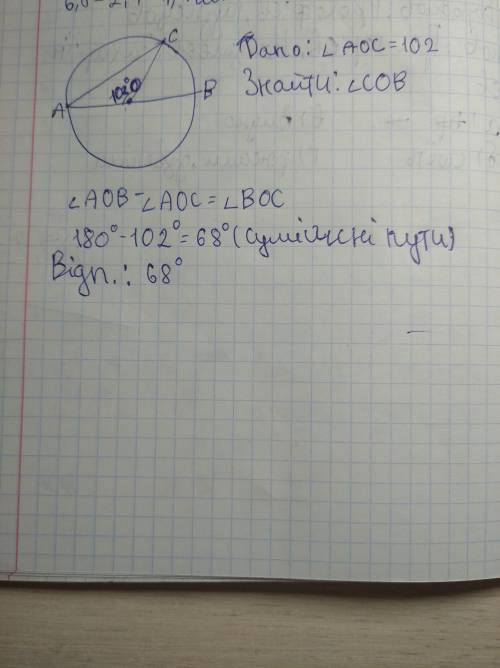 C
A
B
102°
O
Дано: ∠AOC=102
Знайти: ∠COB
∠AOB-∠AOC=∠BOC
180°-102°=68° (суміжні кути)
Відп.: 68°